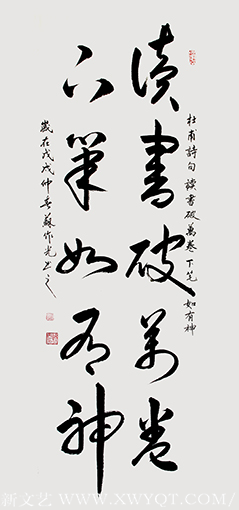 杜甫詩句 讀書破萬卷 下笔如有神
讀書破萬卷
下筆如有神
歲在戊戌仲春蘇作光书之
新文艺 WWW.XWYQT.COM/